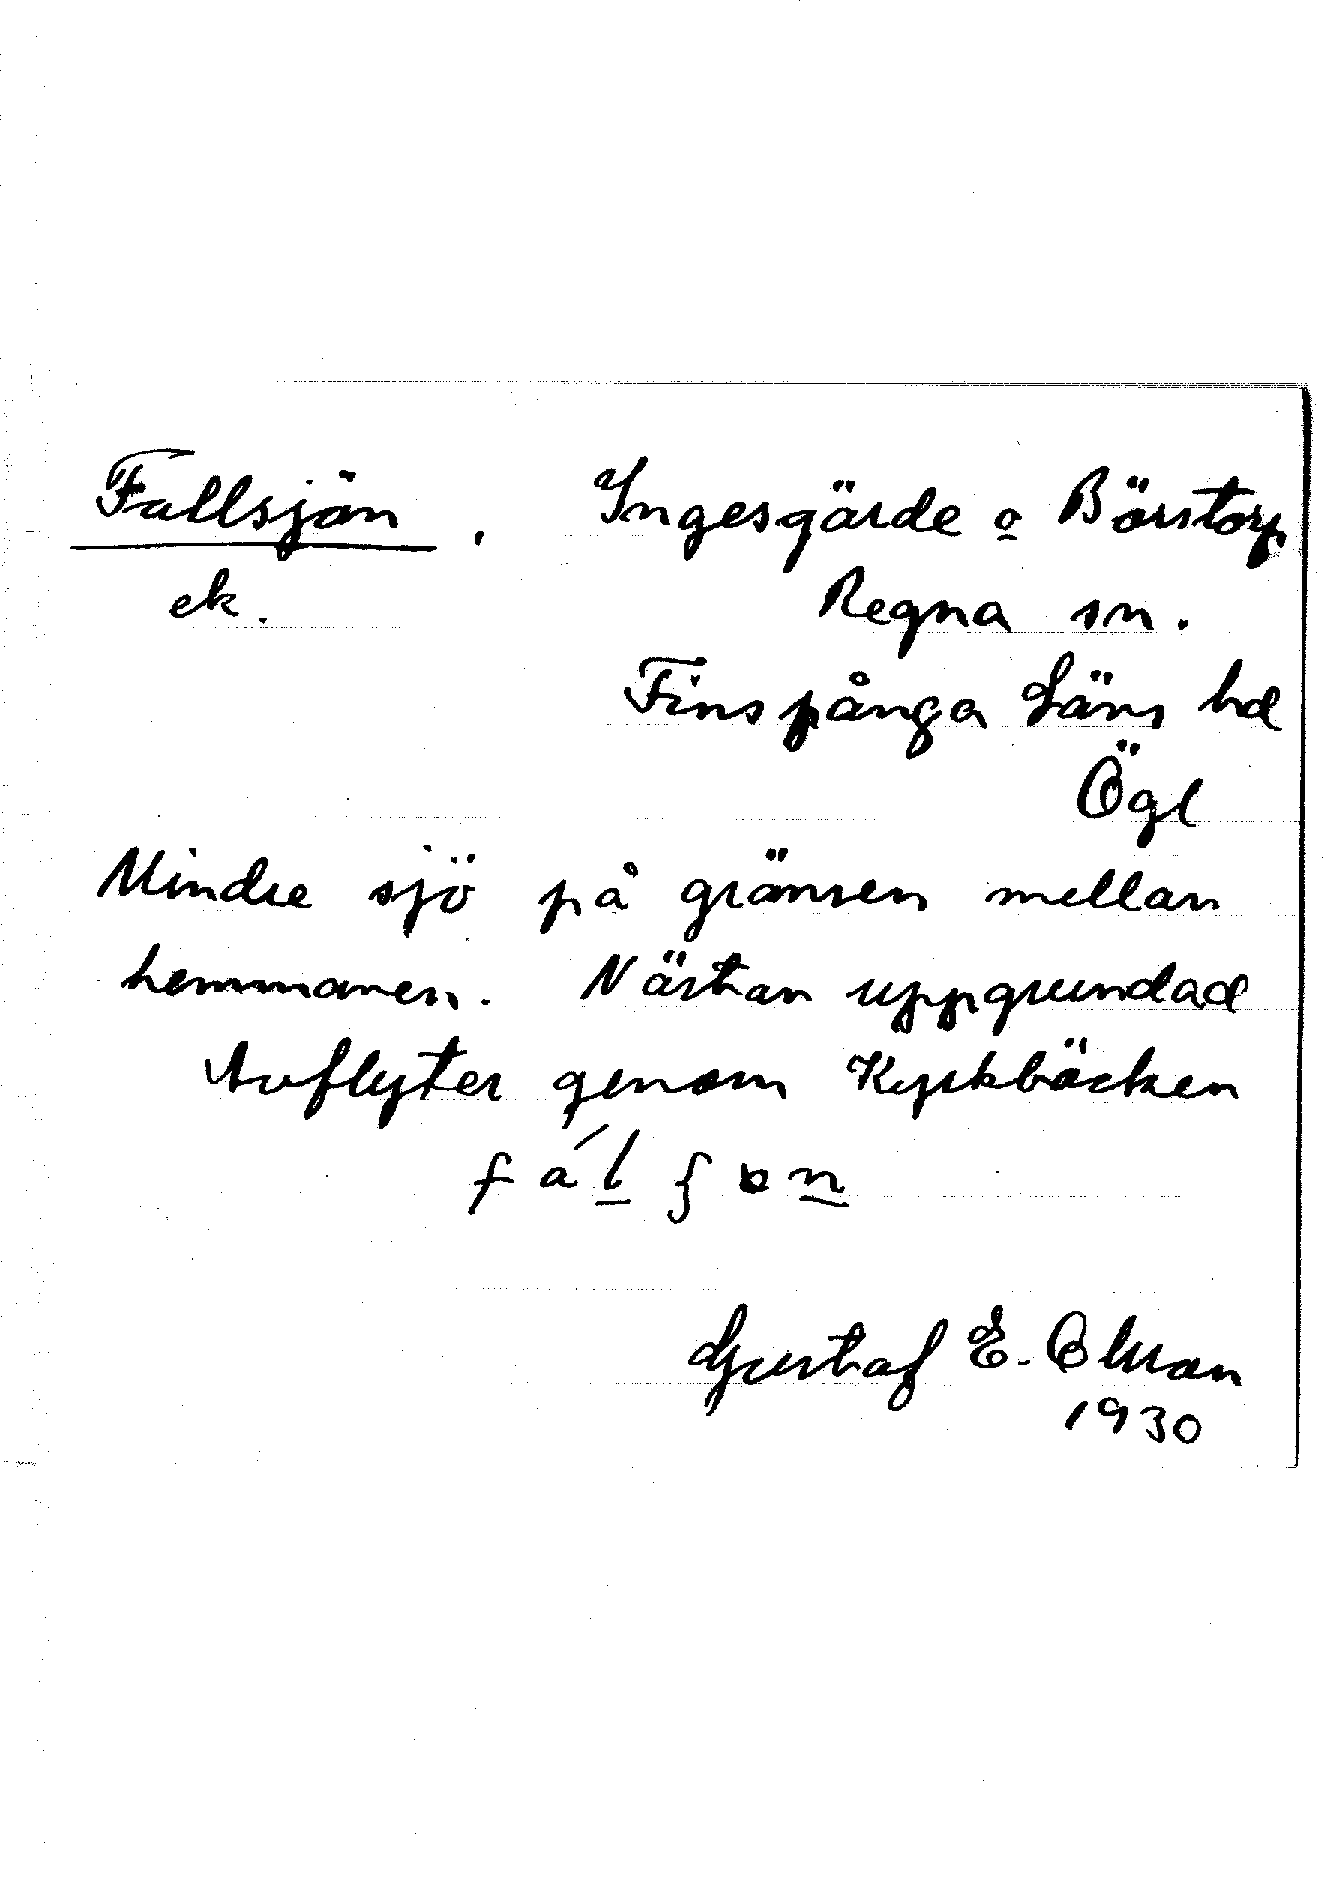 Fallsjön. Ingesgärde o Börstorp
ek. Regna sn.
Finspånga Läns hd
Ögl
Mindre sjö på gränsen mellan
hemmanen. Nästan uppgrundad
Avflyter genom Kyrkbäcken
Gustaf E. Olsson
1930